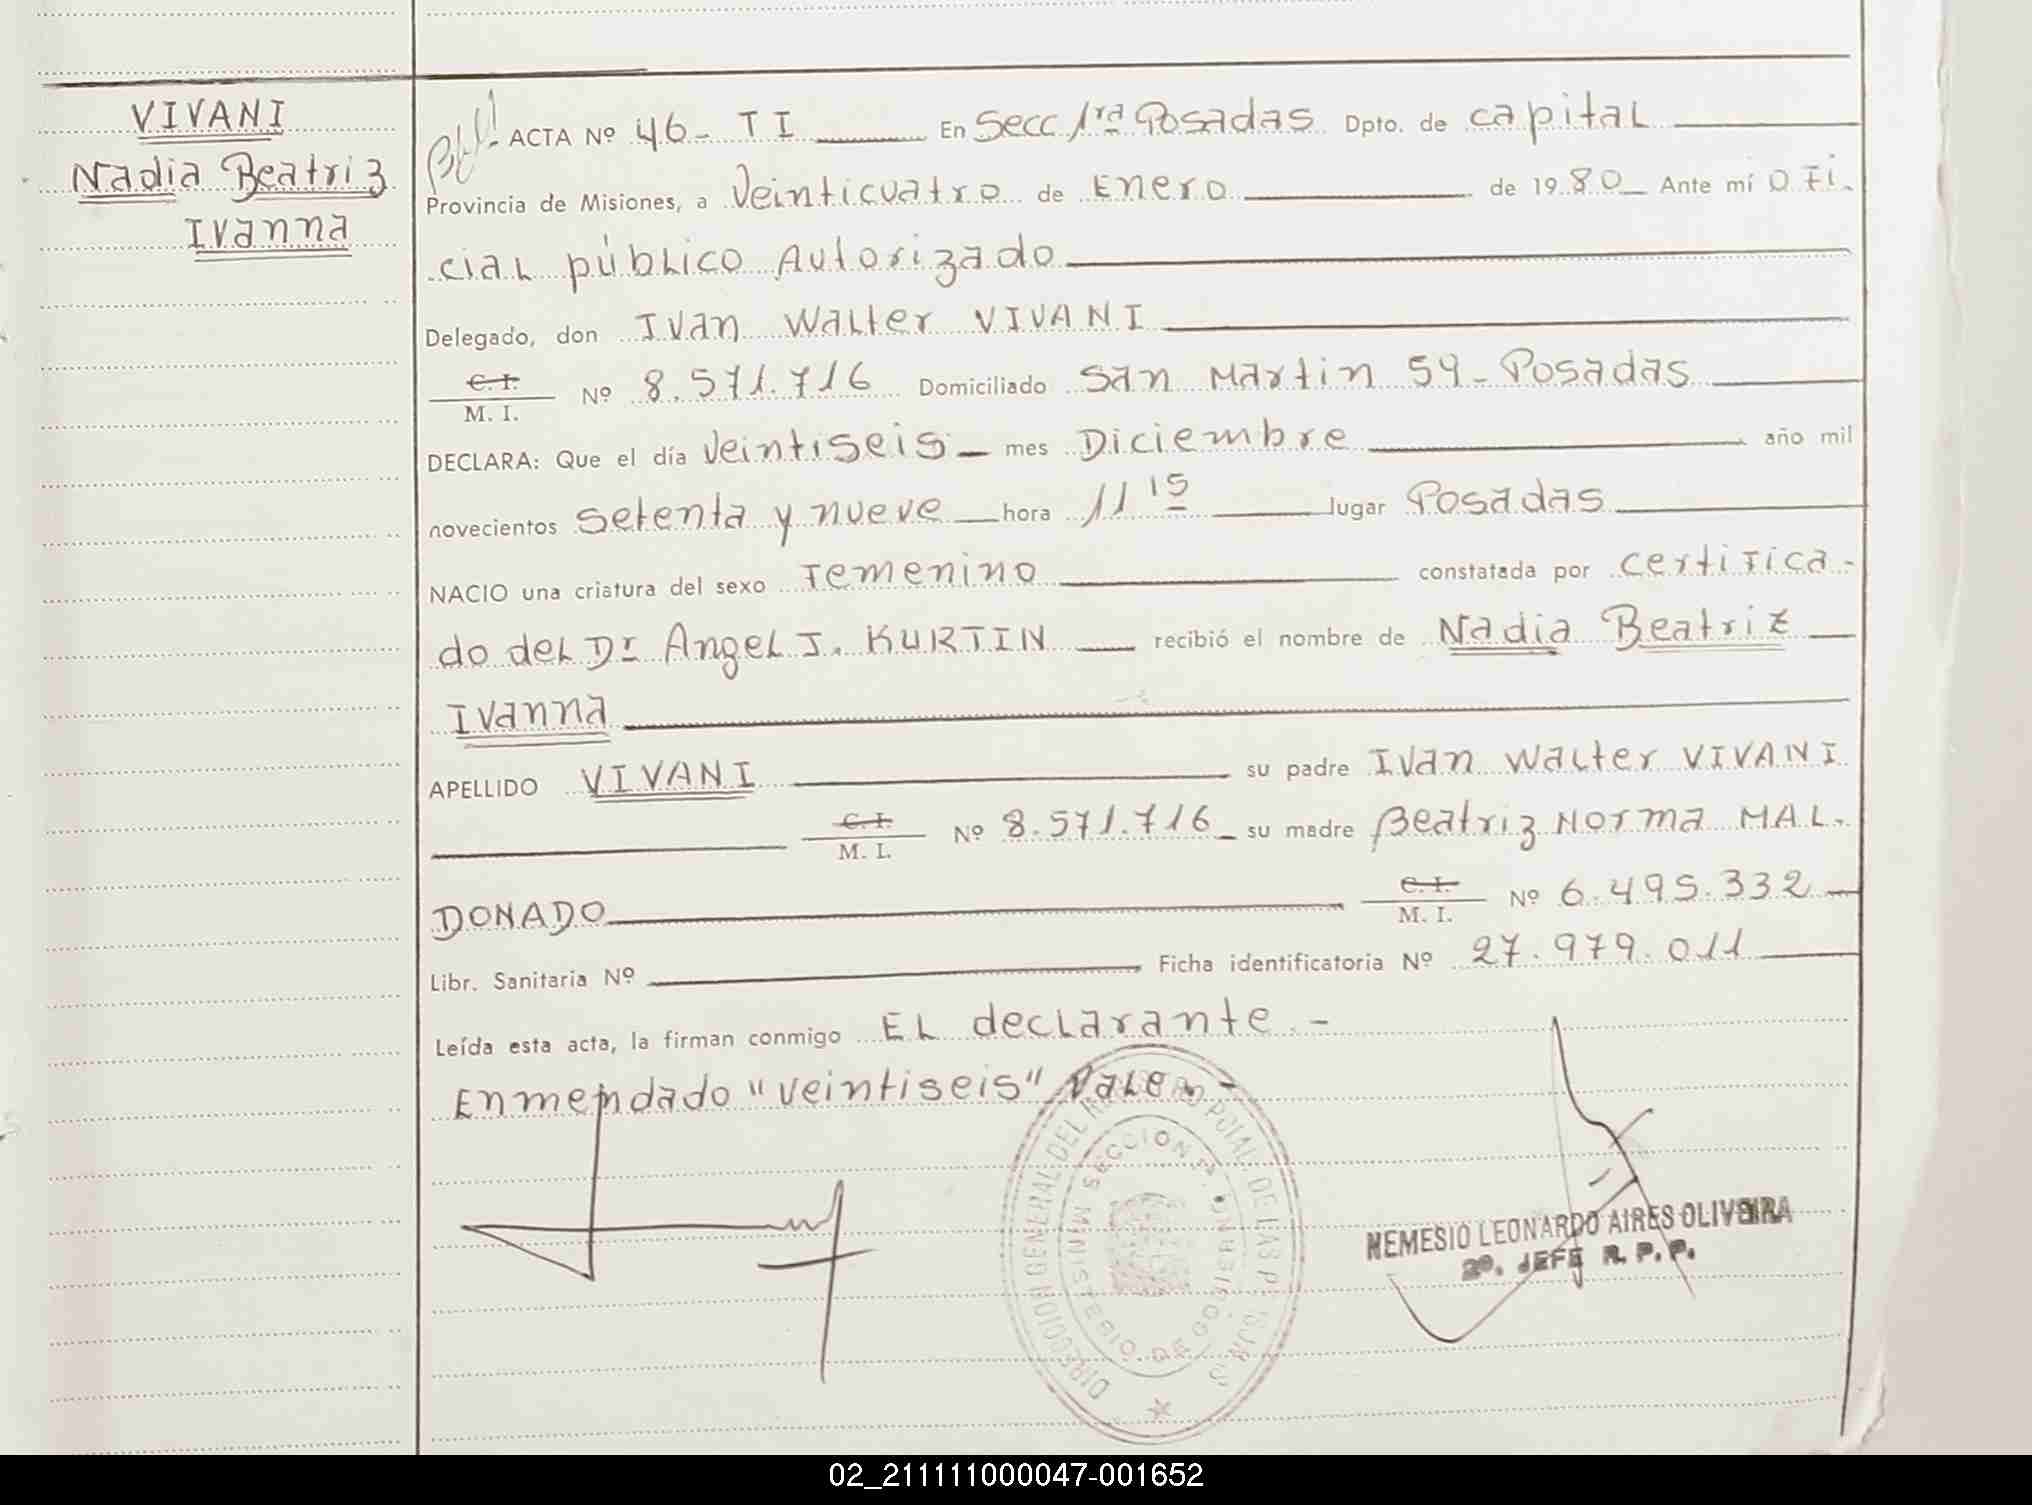 VIVANI
Nadia Beatriz
Ivanna
ACTA Nº 46 - TI En Secc 1ra Posadas Dpto. de capital
Provincia de Misiones, a Veinticuatro de Enero de 1980 Ante mí Ofi-
cial público Autorizado
Delegado, don Ivan Walter VIVANI
C. I.
M. I. Nº 8.571.716 Domiciliado San Martin 59 - Posadas
DECLARA: Que el día veintiseis mes Diciembre año mil
novecientos setenta y nueve hora 11 15 lugar Posadas
NACIO una criatura del sexo Femenino constatada por certifica-
do del Dr Angel J. KURTIN recibió el nombre de Nadia Beatriz
Ivanna
APELLIDO VIVANI su padre Ivan Walter VIVANI
C. I.
M. I. Nº 8.571.716 su madre Beatriz Norma MAL-
DONADO C. I.
M. I. Nº 6.495.332
Libr. Sanitaria Nº Ficha identificatoria Nº 27.979.011
Leída esta acta, la firman conmigo El declarante. -
Enmendado "veintiseis" Vale. -
DIRECCION GENERAL DEL DE LAS
MINISTERIO DE GOBIERNO
SECCION 1ª
NEMESIO LEONARDO AIRES OLIVEIRA
2º. JEFE R. P. P.
02_211111000047-001652